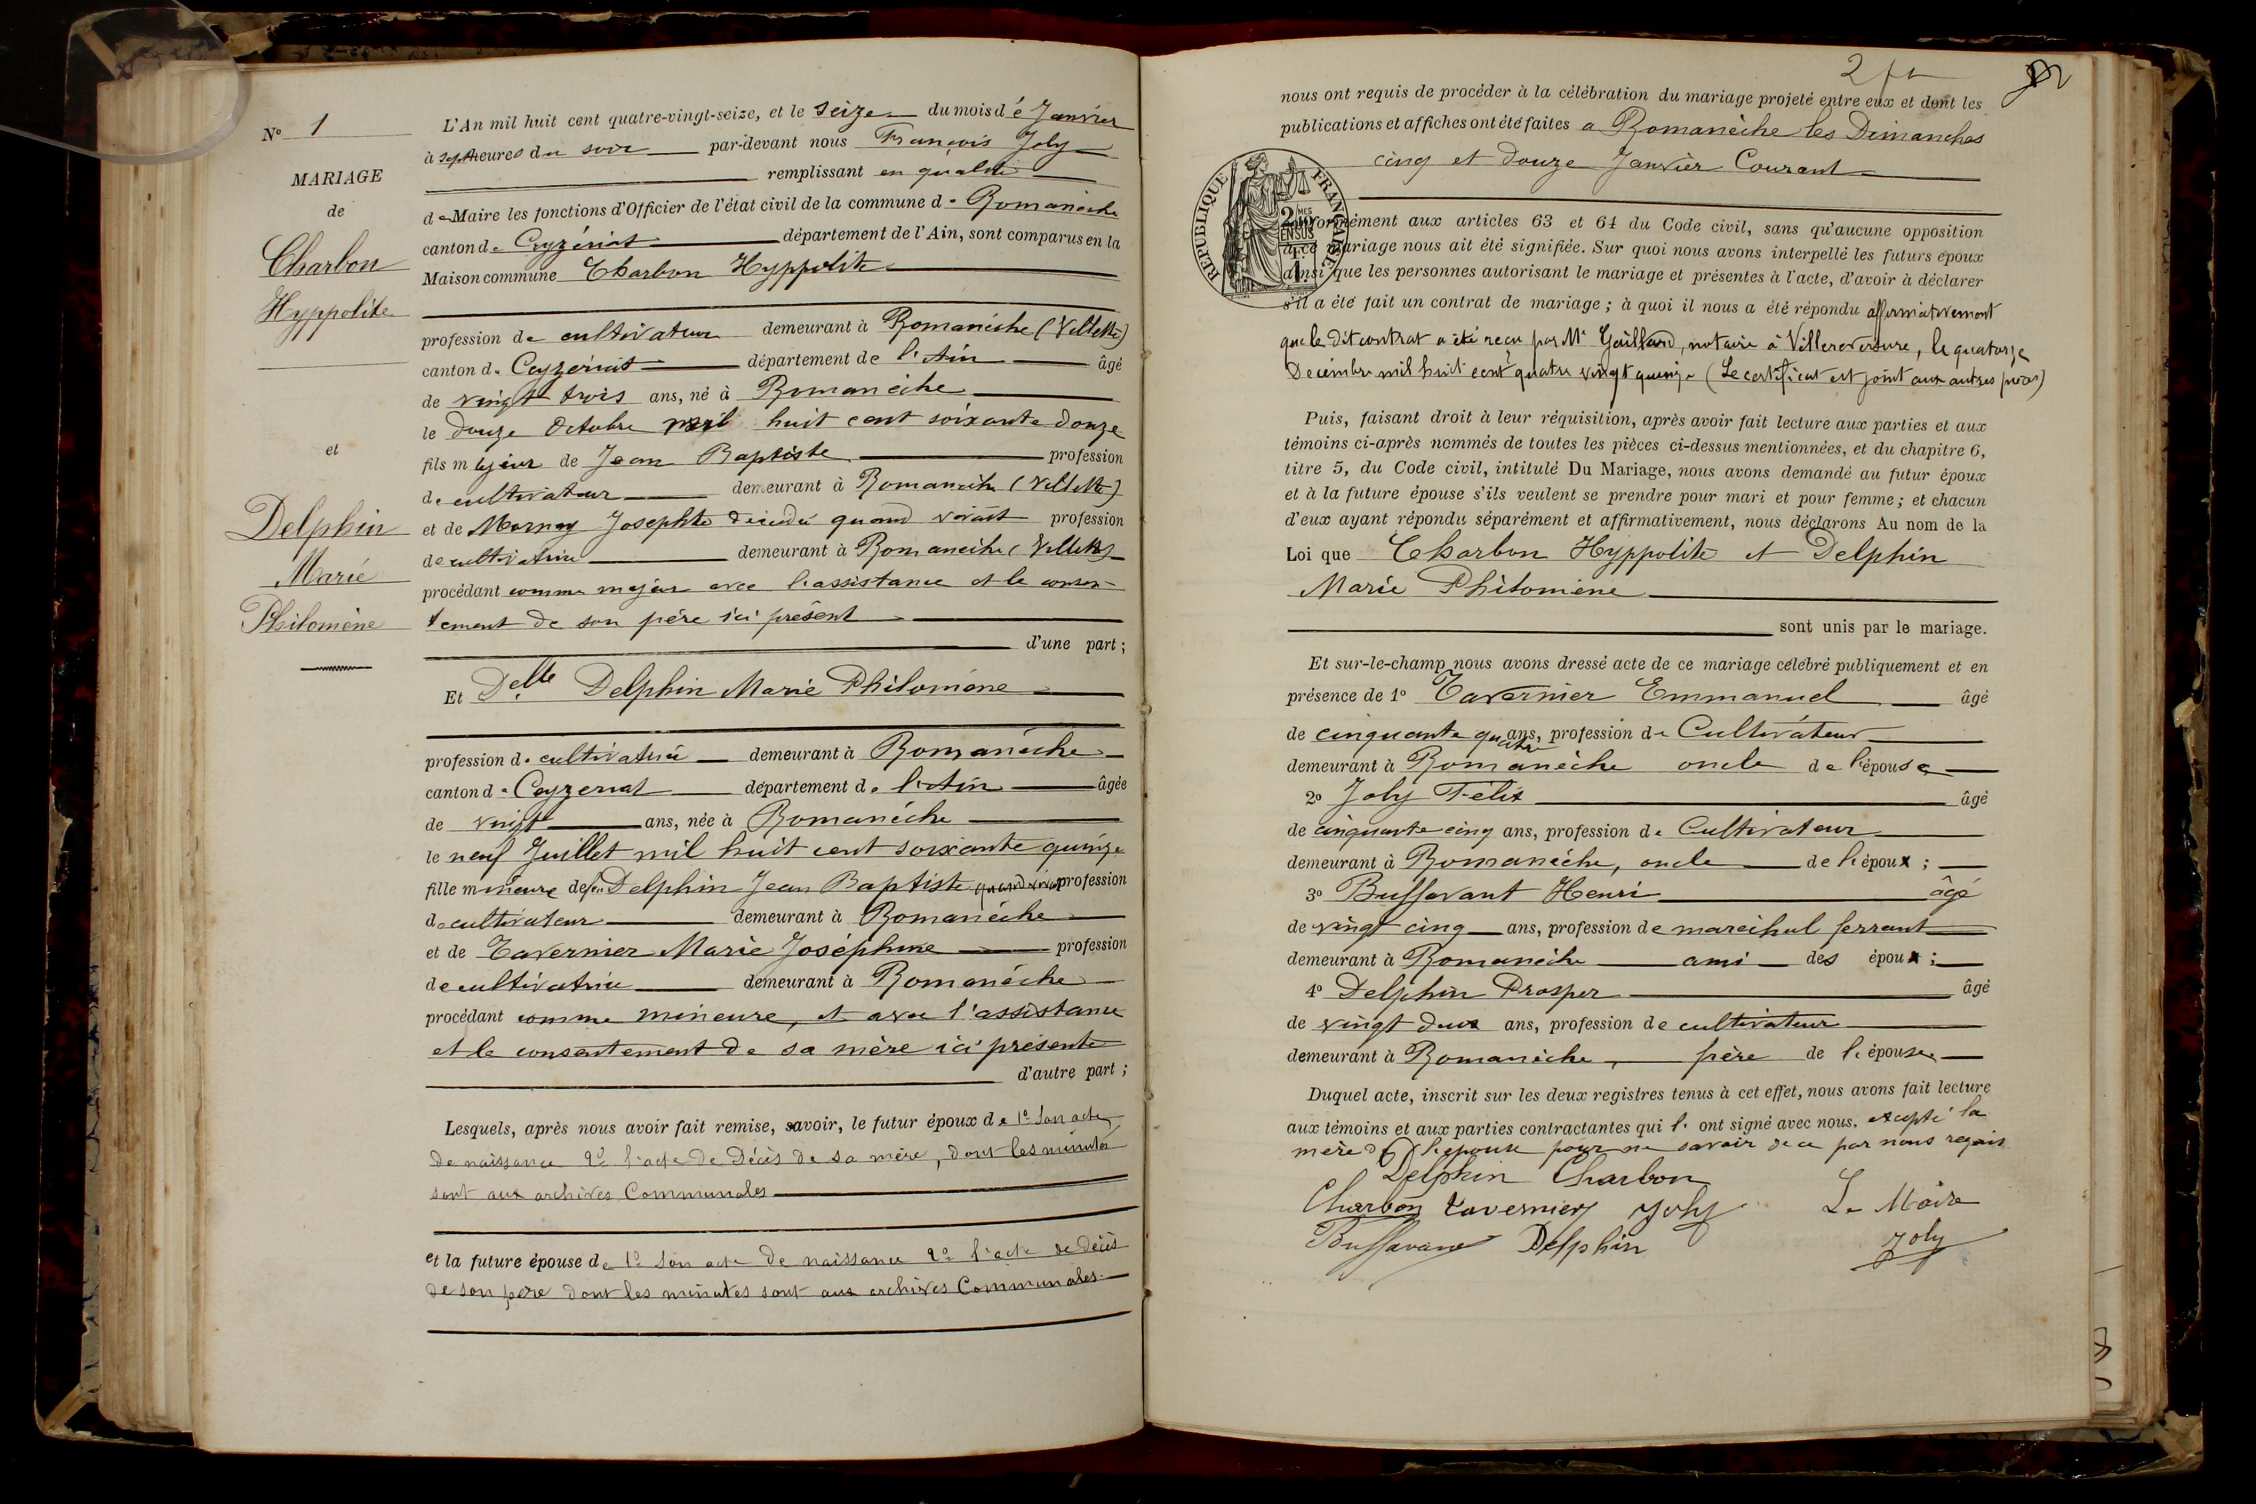 N° 1
MARIAGE
de
Charbon
Hyppolite
et
Delphin
Marie
Philomène
L'An mil huit cent quatre-vingt-seize, et le seize du mois dé Janvier
à sept heures du soir par-devant nous François Joly
remplissant en qualité
de Maire les fonctions d'Officier de l'état civil de la commune de Romanèche
canton de Ceyzériat département de l'Ain, sont comparus en la
Maison commune Charbon Hyppolite
profession de cultivateur demeurant à Romanèche (Villette)
canton de Ceyzériat département de l'Ain âgé
de vingt trois ans, né à Romanèche
le douze Octobre mil huit cent soixante douze
fils majeur de Jean Baptiste profession
de cultivateur demeurant à Romanèche (Villette)
et de Mornay Josephte décédé quand vivait profession
de cultivatrice demeurant à Romanèche (Villette)
procédant comme majeur avec l'assistance et le consen-
tement de son père ici présent
d'une part ;
Et Delle Delphin Marie Philomène
profession de cultivatrice demeurant à Romanèche
canton de Ceyzeriat département de l'Ain âgée
de vingt ans, née à Romanèche
le neuf Juillet mil huit cent soixante quinze
fille mineure de feu Delphin Jean Baptiste quand vivait profession
de cultivateur demeurant à Romanèche
et de Tavernier Marie Joséphine profession
de cultivatrice demeurant à Romanèche
procédant comme mineure, et avec l'assistance
et le consentement de sa mère ici présente
d'autre part ;
Lesquels, après nous avoir fait remise, savoir, le futur époux de 1° Son acte
de naissance 2° l'acte de Décès de sa mère, dont les minutes
sont aux archives Communales
et la future épouse de 1° Son acte de naissance 2° l'acte de décès
de son père dont les minutes sont aux archives Communales.
2
nous ont requis de procéder à la célébration du mariage projeté entre eux et dont les
publications et affiches ont été faites a Romanèche les Dimanches
cinq et douze Janvier Courant
RÉPUBLIQUE FRANÇAISE
conformément aux articles 63 et 64 du Code civil, sans qu'aucune opposition
à ce mariage nous ait été signifiée. Sur quoi nous avons interpellé les futurs époux
ainsi que les personnes autorisant le mariage et présentes à l'acte, d'avoir à déclarer
s'il a été fait un contrat de mariage ; à quoi il nous a été répondu affirmativement
que le dit contrat a été reçu par Me Gaillard, notaire à Villereversure, le quatorze
Décembre mil huit cent quatre vingt quinze (Le certificat est joint aux autres pièces)
Puis, faisant droit à leur réquisition, après avoir fait lecture aux parties et aux
témoins ci-après nommés de toutes les pièces ci-dessus mentionnées, et du chapitre 6,
titre 5, du Code civil, intitulé Du Mariage, nous avons demandé au futur époux
et à la future épouse s'ils veulent se prendre pour mari et pour femme ; et chacun
d'eux ayant répondu séparément et affirmativement, nous déclarons Au nom de la
Loi que Charbon Hyppolite et Delphin
Marie Philomène
sont unis par le mariage.
Et sur-le-champ nous avons dressé acte de ce mariage célébré publiquement et en
présence de 1° Tavernier Emmanuel âgé
de cinquante quatre ans, profession de Cultivateur
demeurant à Romanèche oncle de l'épouse
2° Joly Félix âgé
de cinquante cinq ans, profession de Cultivateur
demeurant à Romanèche, oncle de l'époux ;
3° Buffavant Henri âgé
de vingt cinq ans, profession de maréchal ferrant
demeurant à Romanèche ami des époux ;
4° Delphin Prosper âgé
de vingt deux ans, profession de cultivateur
demeurant à Romanèche, frère de l'épouse
Duquel acte, inscrit sur les deux registres tenus à cet effet, nous avons fait lecture
aux témoins et aux parties contractantes qui l' ont signé avec nous, excepté la
mère de l'épouse pour ne savoir de ce par nous requis
Delphin Charbon
Charbon Tavernier Joly Le Maire
Buffavant Delphin Joly